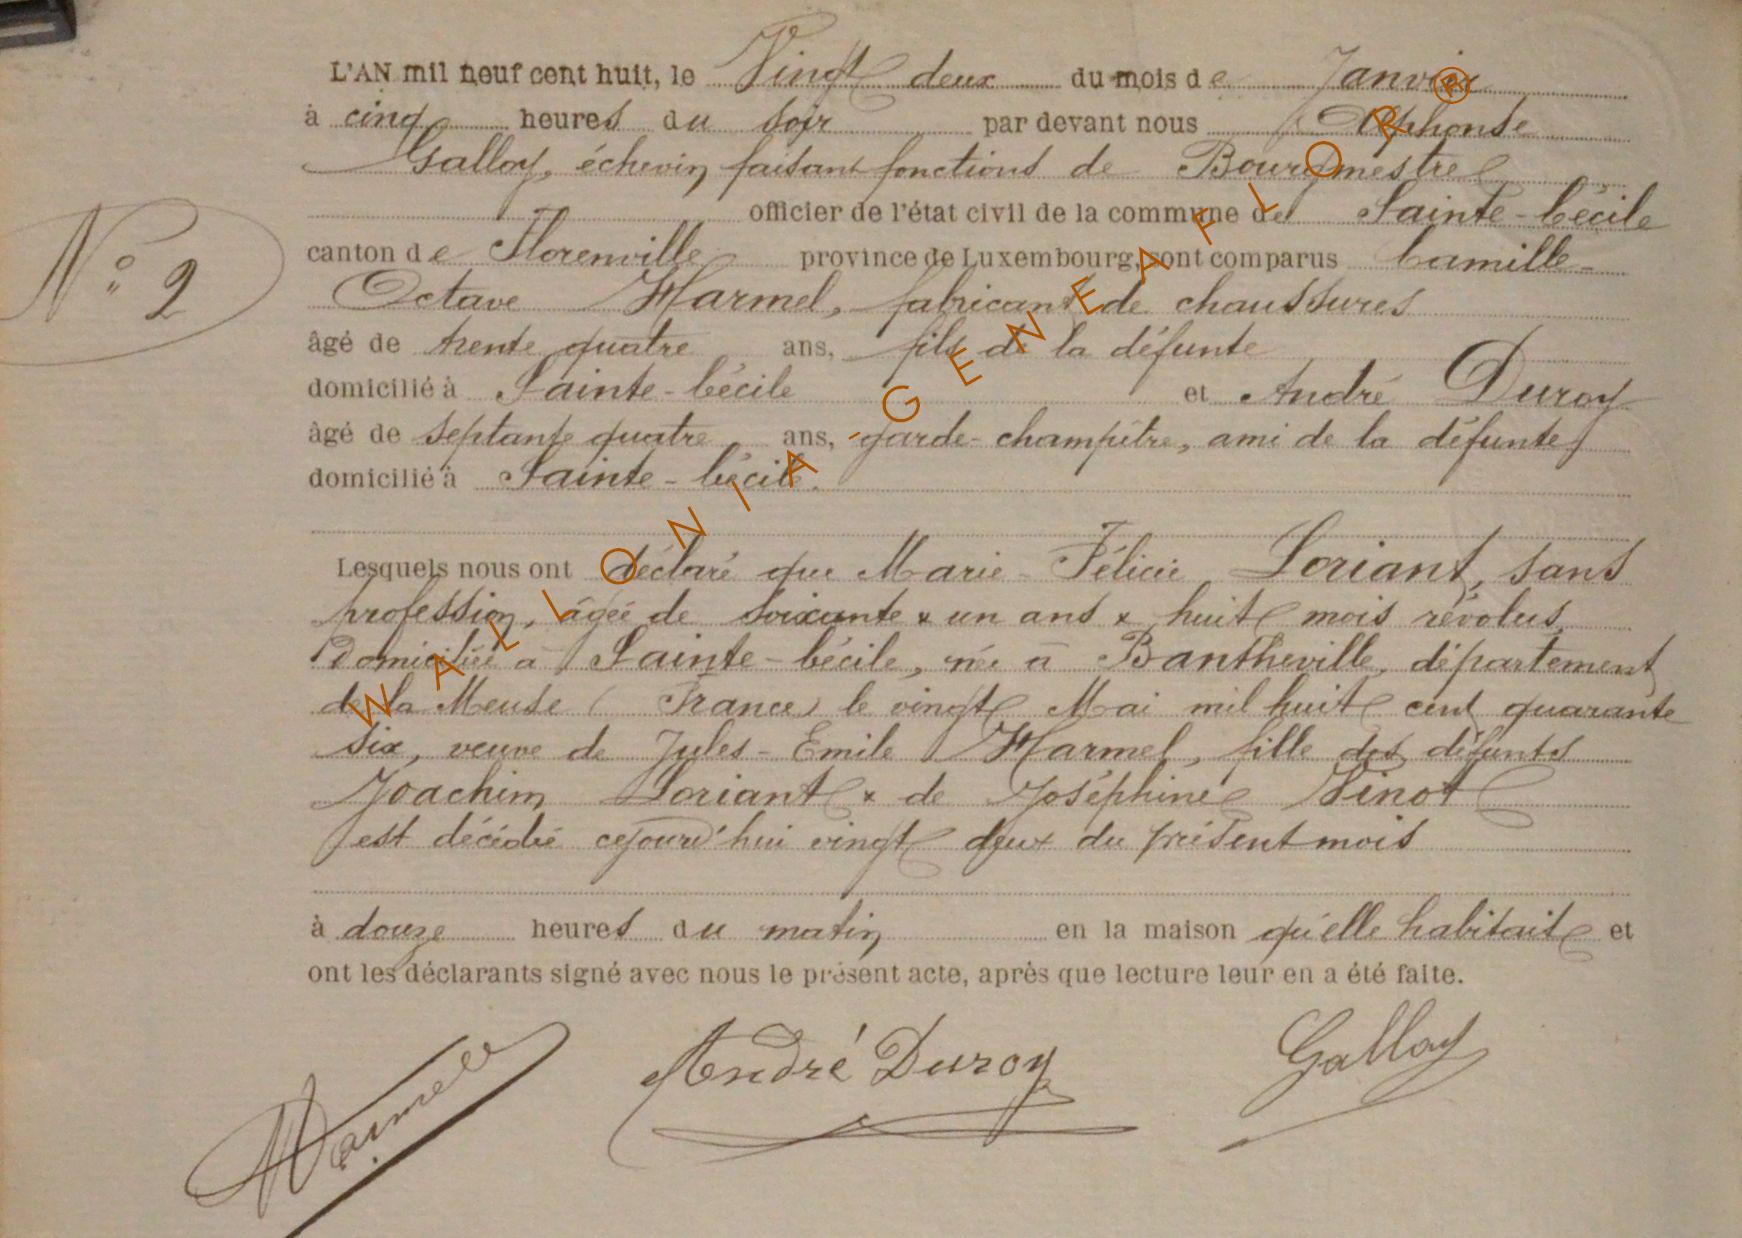 L'AN mil neuf cent huit, le Vingt deux du mois de Janvier
à cinq heures du soir par devant nous Alphonse
Galloy, échevin faisant fonctions de Bourgmestre
officier de l'état civil de la commune de Sainte-Cécile
N° 2
canton de Florenville province de Luxembourg, sont comparus Camille-
Octave Harmel, fabricant de chaussures
âgé de trente quatre ans, fils de la défunte
domicilié à Sainte-Cécile et André Duroy
âgé de septante quatre ans, garde-champêtre, ami de la défunte,
domicilié à Sainte-Cécile.
Lesquels nous ont déclaré que Marie-Félicie Loriant, sans
profession, âgée de soixante & un ans & huit mois révolus,
domiciliée à Sainte-Cécile, née à Bantheville, département
de la Meuse (France) le vingt Mai mil huit cent quarante
six, veuve de Jules-Emile Harmel, fille des défunts
Joachim Loriant & de Joséphine Vinot
est décédée cejourd'hui vingt deux du présent mois
à douze heures du matin en la maison qu'elle habitait et
ont les déclarants signé avec nous le présent acte, après que lecture leur en a été faite.
Harmel André Duroy Galloy
WALLONIA-GENEAFLOR®